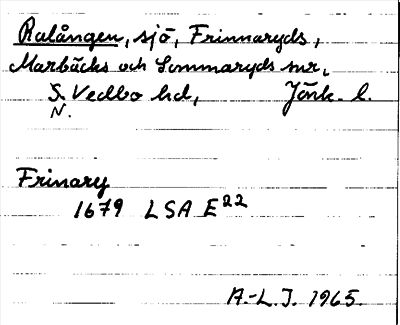 Ralången, sjö, Frinnaryds,
Marbäcks och Lommaryds snr,
S. Vedbo hd, Jönk. l.
N.
Frinary
1679 LSA E22
A.-L.J. 1965.